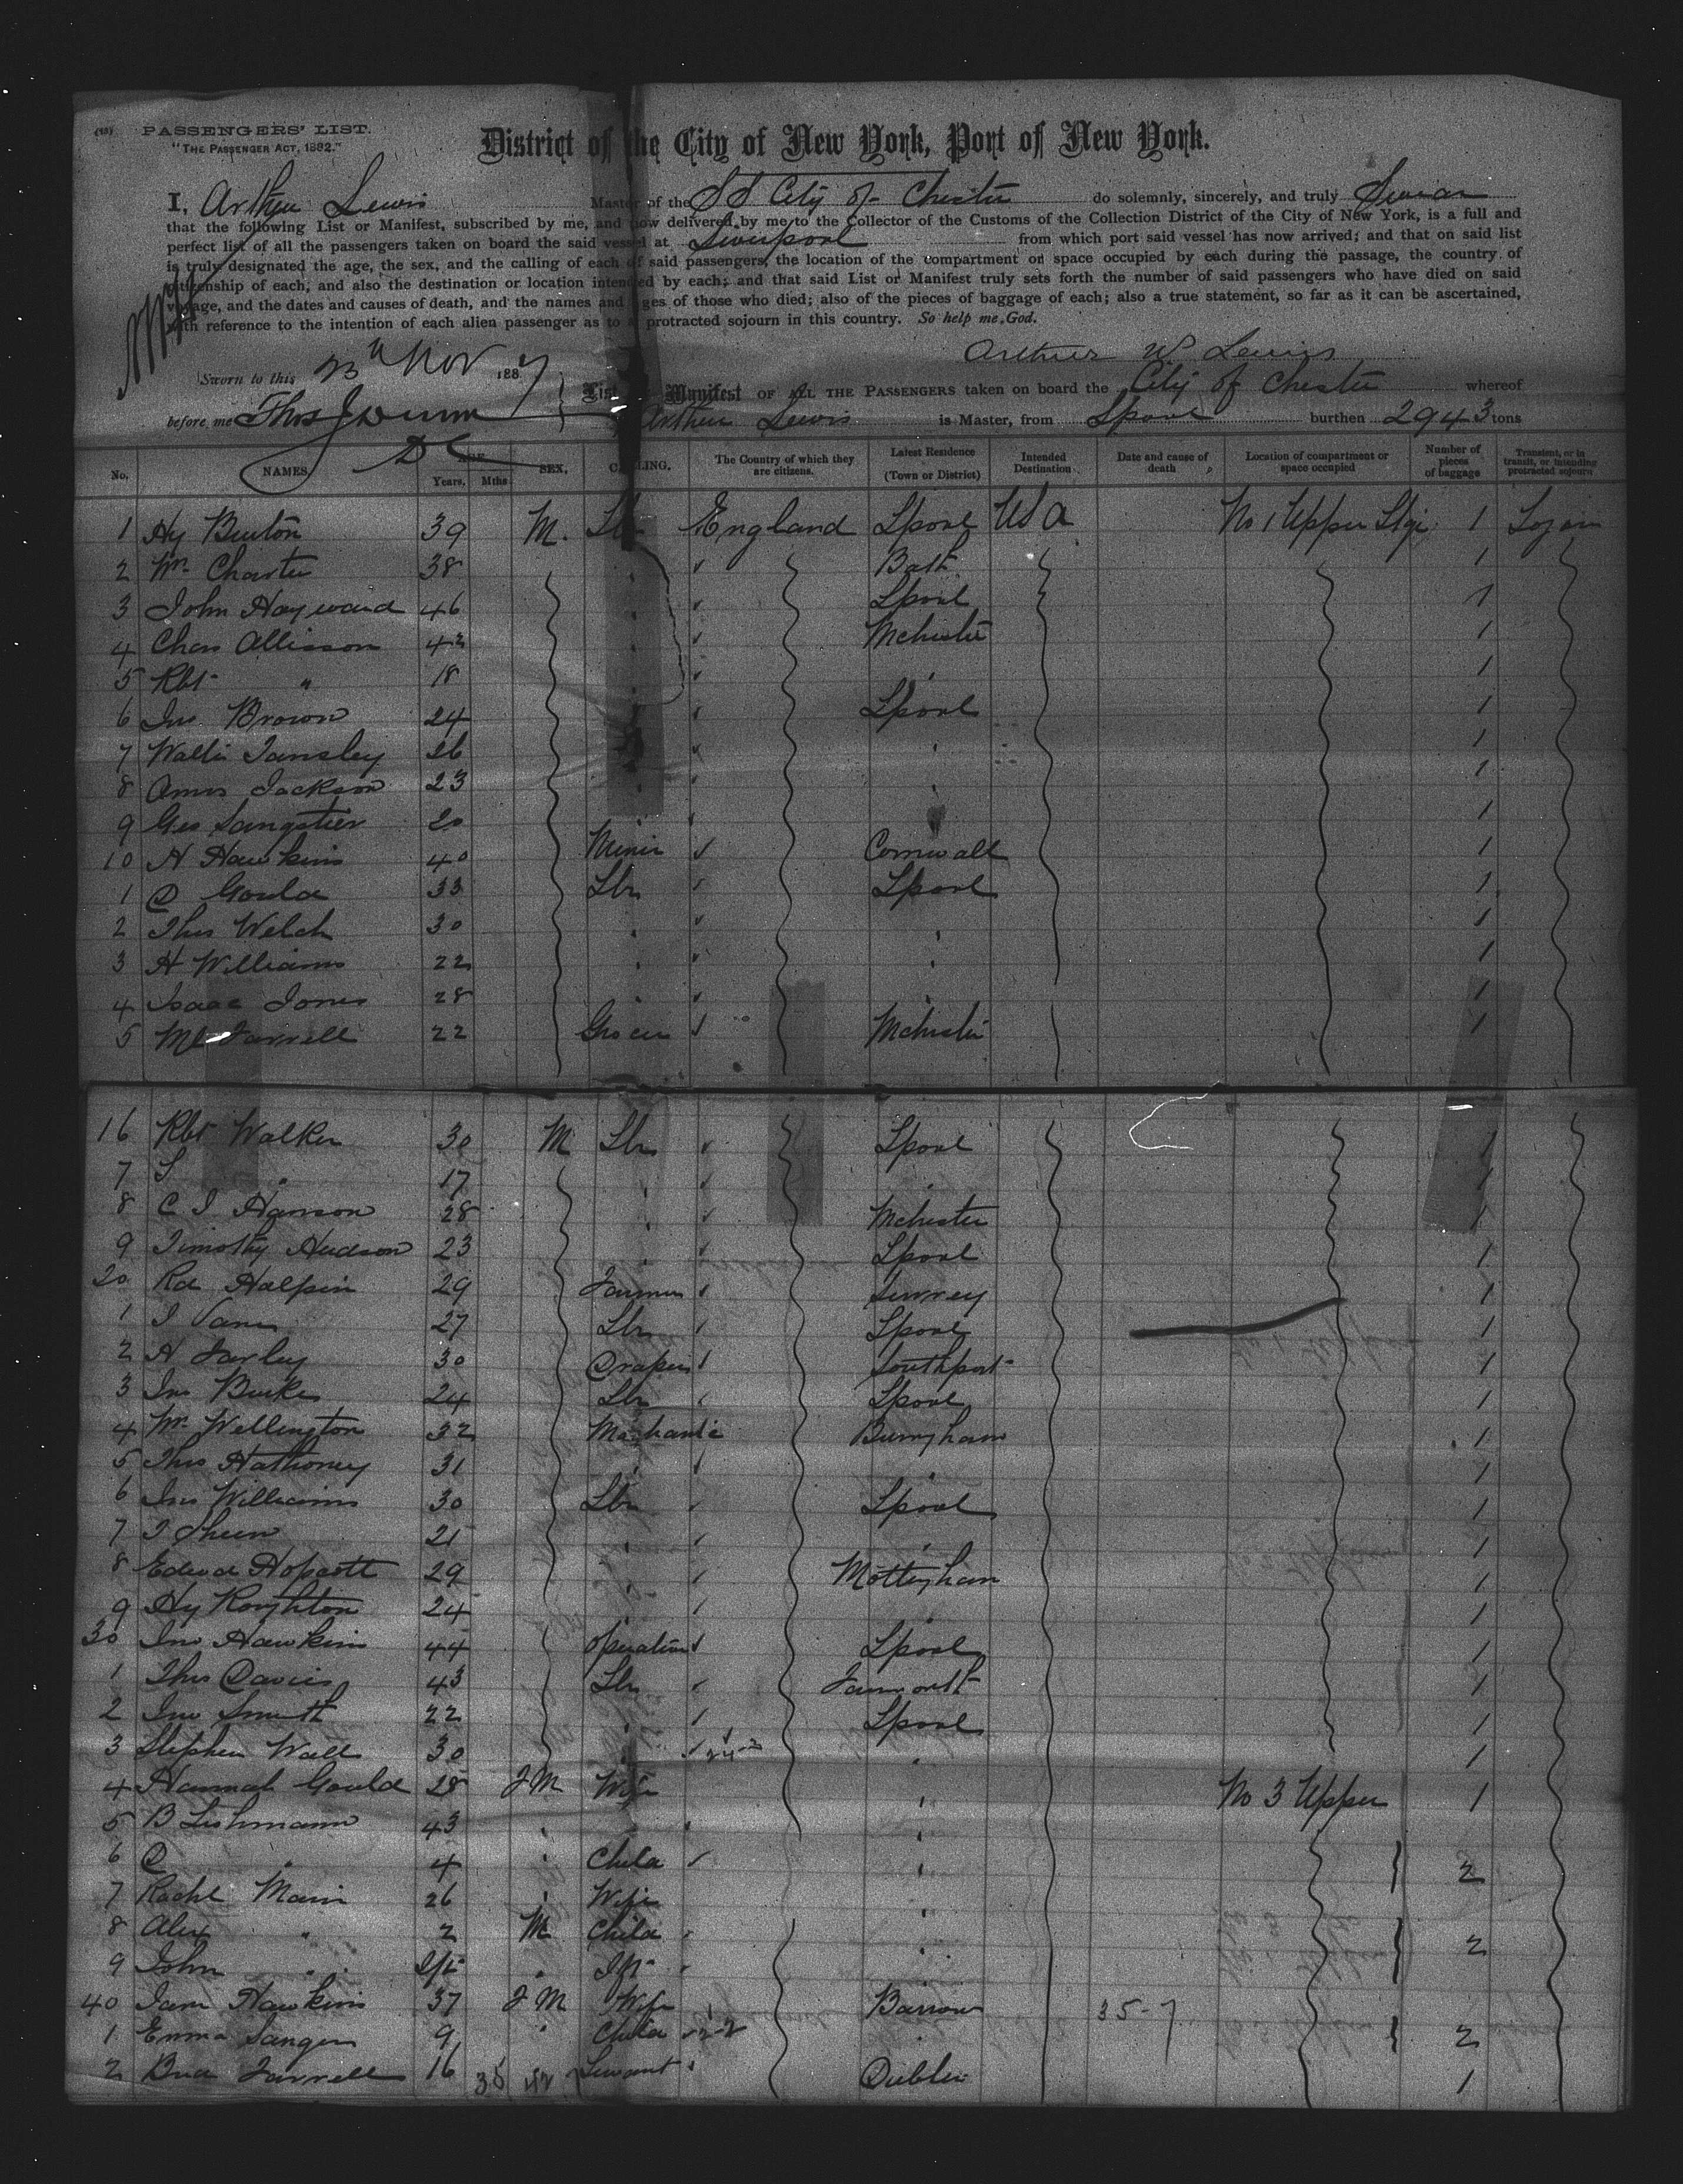 (10) PASSENGERS' LIST.
"THE PASSENGER ACT, 1882."
District of the City of New York, Port of New York.
I, Arthur Lewis Master of the SS City of Chester do solemnly, sincerely, and truly Swear
that the following List or Manifest, subscribed by me, and now delivered by me to the Collector of the Customs of the Collection District of the City of New York, is a full and
perfect list of all the passengers taken on board the said vessel at Liverpool from which port said vessel has now arrived; and that on said list
is truly designated the age, the sex, and the calling of each of said passengers, the location of the compartment or space occupied by each during the passage, the country of
citizenship of each, and also the destination or location intended by each; and that said List or Manifest truly sets forth the number of said passengers who have died on said
voyage, and the dates and causes of death, and the names and ages of those who died; also of the pieces of baggage of each; also a true statement, so far as it can be ascertained,
with reference to the intention of each alien passenger as to a protracted sojourn in this country. So help me God.
Arthur W Lewis
Sworn to this Nov 1887
before me Thos J Dunn
DC
List or Manifest OF ALL THE PASSENGERS taken on board the City of Chester whereof
Arthur Lewis is Master, from Lpool burthen 2943 tons
No. NAMES AGE Years. Mths SEX. CALLING. The Country of which they are citizens. Latest Residence (Town or District) Intended Destination Date and cause of death Location of compartment or space occupied Number of pieces of baggage Transient, or in transit, or intending protracted sojourn
1 Hy Burton 39 M. Lbr England Lpool USA No 1 Upper Stge 1
2 Wm Charter 38 Bath 1
3 John Hayward 46 Lpool 1
4 Chas Allisson 42 Mchester 1
5 Rbt " 18 1
6 Jno Brown 24 Lpool 1
7 Walter Tansley 26 1
8 Amos Jackson 23 1
9 Geo Sangster 20 1
10 H Hawkins 40 Miner Cornwall 1
1 D Gould 33 Lbr Lpool 1
2 Thos Welch 30 1
3 H Williams 22 1
4 Isaac Jones 28 1
5 Ml Farrell 22 Grocer Mchester 1
16 Rbt Walker 30 M Lbr Lpool 1
7 S " 17 1
8 C J Hanson 28 Mchester 1
9 Timothy Hudson 23 Lpool 1
20 Rd Halpin 29 Farmer Surrey 1
1 27 Lbr Lpool 1
2 H Farley 30 Draper Southport 1
3 Jno Burke 24 Lbr Lpool 1
4 Wm Wellington 32 Mechanic Birmgham 1
5 Thos 31 1
6 Jno Williams 30 Lbr Lpool 1
7 21 1
8 Edwd Hopcott 29 Nottingham 1
9 Hy 24 1
30 Jno Hawkins 44 Operative Lpool 1
1 Thos Davies 43 Lbr Farnworth 1
2 Jno Smith 22 Lpool 1
3 Stephen Wall 30 1
4 Hannah Gould 28 FM Wife No 3 Upper 1
5 B Lishmann 43
6 D " 4 Child 2
7 Rachl Mann 26 Wife
8 Alex " 2 M Child 2
9 John " Inft Inft
40 Jane Hawkins 37 FM Wife Barrow 35-7
1 Emma Sanger 9 Child 2
2 Farrell 16 35 42 Servant Dublin 1